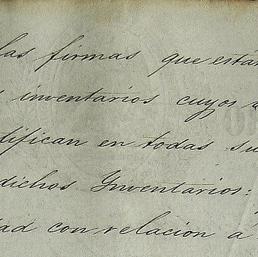 las firmas que están
inventarios cuyos
difican en todas su
dichos Ynventarios:
dad con relacion á